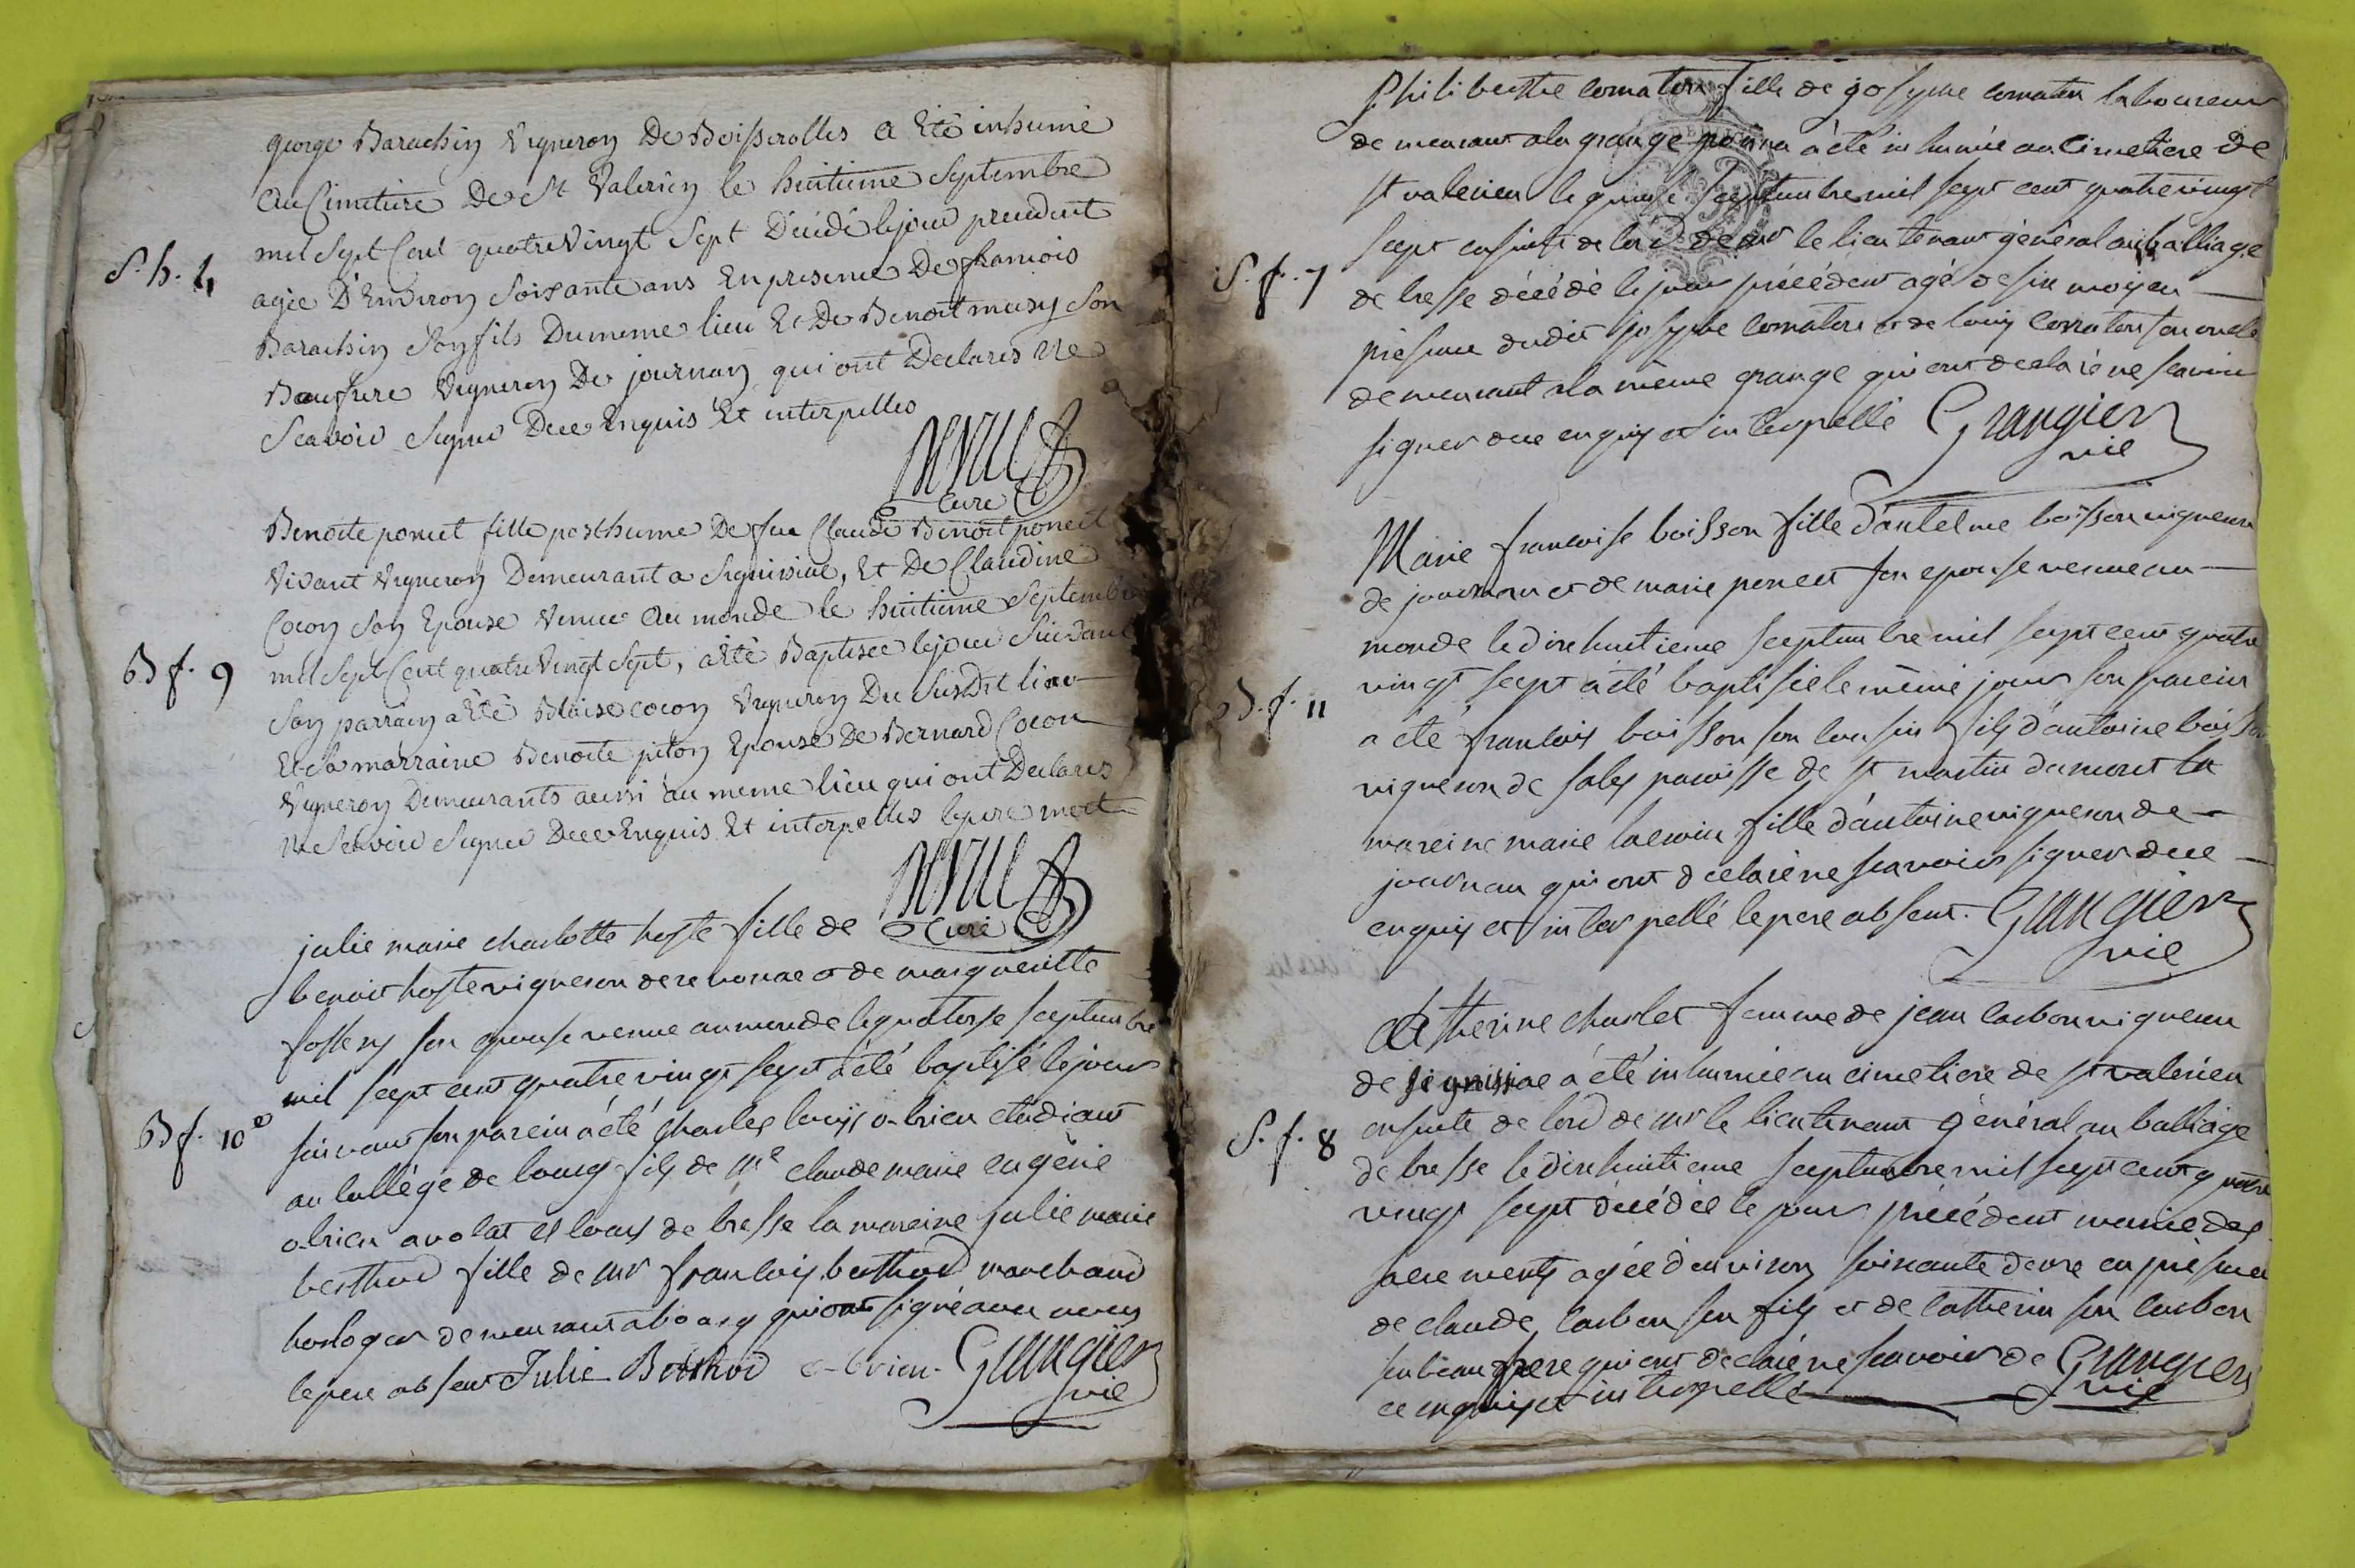 george Barachin Vigneron De Boisserolles a Eté inhumé
au Cimetiere De St Valerien le huitieme Septembre
mil Sept Cent quatre Vingt Sept Décédé le jour precedent
S. h. 4
agée D'Environ Soixante ans En presence De francois
Barachin Son fils Du meme lieu Et De Benoit musy Son
Beaufrere Vigneron De journan qui ont Declarés Ne
Scavoir Signer Dece Enquis Et interpelles
Curé
Benoite poncet fille posthume De feu Claude Benoit poncet
Vivant Vigneron Demeurant a Signissiae, Et De Claudine
Cocon Son Epouse Venue Au monde le huitieme Septembre
B f. 9
mil Sept Cent quatre Vingt Sept, a Eté Baptisée le jour Suivant
Son parrain a Eté Blaise cocon Vigneron Du Susdit lieu
Et Sa marraine Benoite piton Epouse De Bernard Cocon
Vigneron Demeurants aussi au meme lieu qui ont Declarés
Ne Scavoir Signer Dece Enquis Et interpelles le pere mort
Curé
julie marie charlotte hoste fille de
benoit hoste vigneron de revonae et de marguerite
son epouse venue au monde le quatorse septembre
mil sept cent quatre vingt sept a été baptisé le jour
B f. 10e
suivant son parein a été charles louis o-brien etudiant
au collège de bourg fils de Me claude marie eugène
o-brien avocat es cours de bresse la mareine julie marie
berthod fille de mr francois berthod marchand
horloger demeurant a bourg qui ont signé avec nous
le pere absent Julie Berthod o-brien Grangier
vic
Philiberthe comaton fille de josephe comaton laboureur
demeurant a la grange a été inhumée au cimetiere de
st valerien le quinse septembre mil sept cent quatre vingt
sept ensuite de lord de mr le lieutenant général au balliage
S. f. 7
de bresse décédé le jour précédent agé de six mois en
présence dudit josephe comaton et de louis comaton son oncle
demeurant a la même grange qui ont declaré ne scavoir
signer dece enquis et interpellé Grangier
vic
Marie francoise boisson fille d'antelme boisson vigneron
de journan et de marie poncet son epouse venue au
monde le dixhuitieme septembre mil sept cent quatre
B. f. 11
vingt sept a été baptisée le même jour son parein
a été francois boisson son cousin fils d'antoine boisson
vigneron de sales paroisse de st martin dumont la
mareine marie fille d'antoine vigneron de
journan qui ont declaré ne scavoir signer dece
enquis et interpellé le pere absent. Grangier
vic
Catherine charlet femme de jean carbon vigneron
de signissiae a été inhumée au cimetiere de st valerien
S. f. 8
ensuite de lord de mr le lieutenant général au balliage
de bresse le dixhuitieme septembre mil sept cent quatre
vingt sept décédée le jour précédent munie des
sacrements agée d'environ soixante deux en présence
de claude carbon son fils et de catherin carbon
son beau frere qui ont declaré ne scavoir de Grangier
ce enquis et interpellé vic